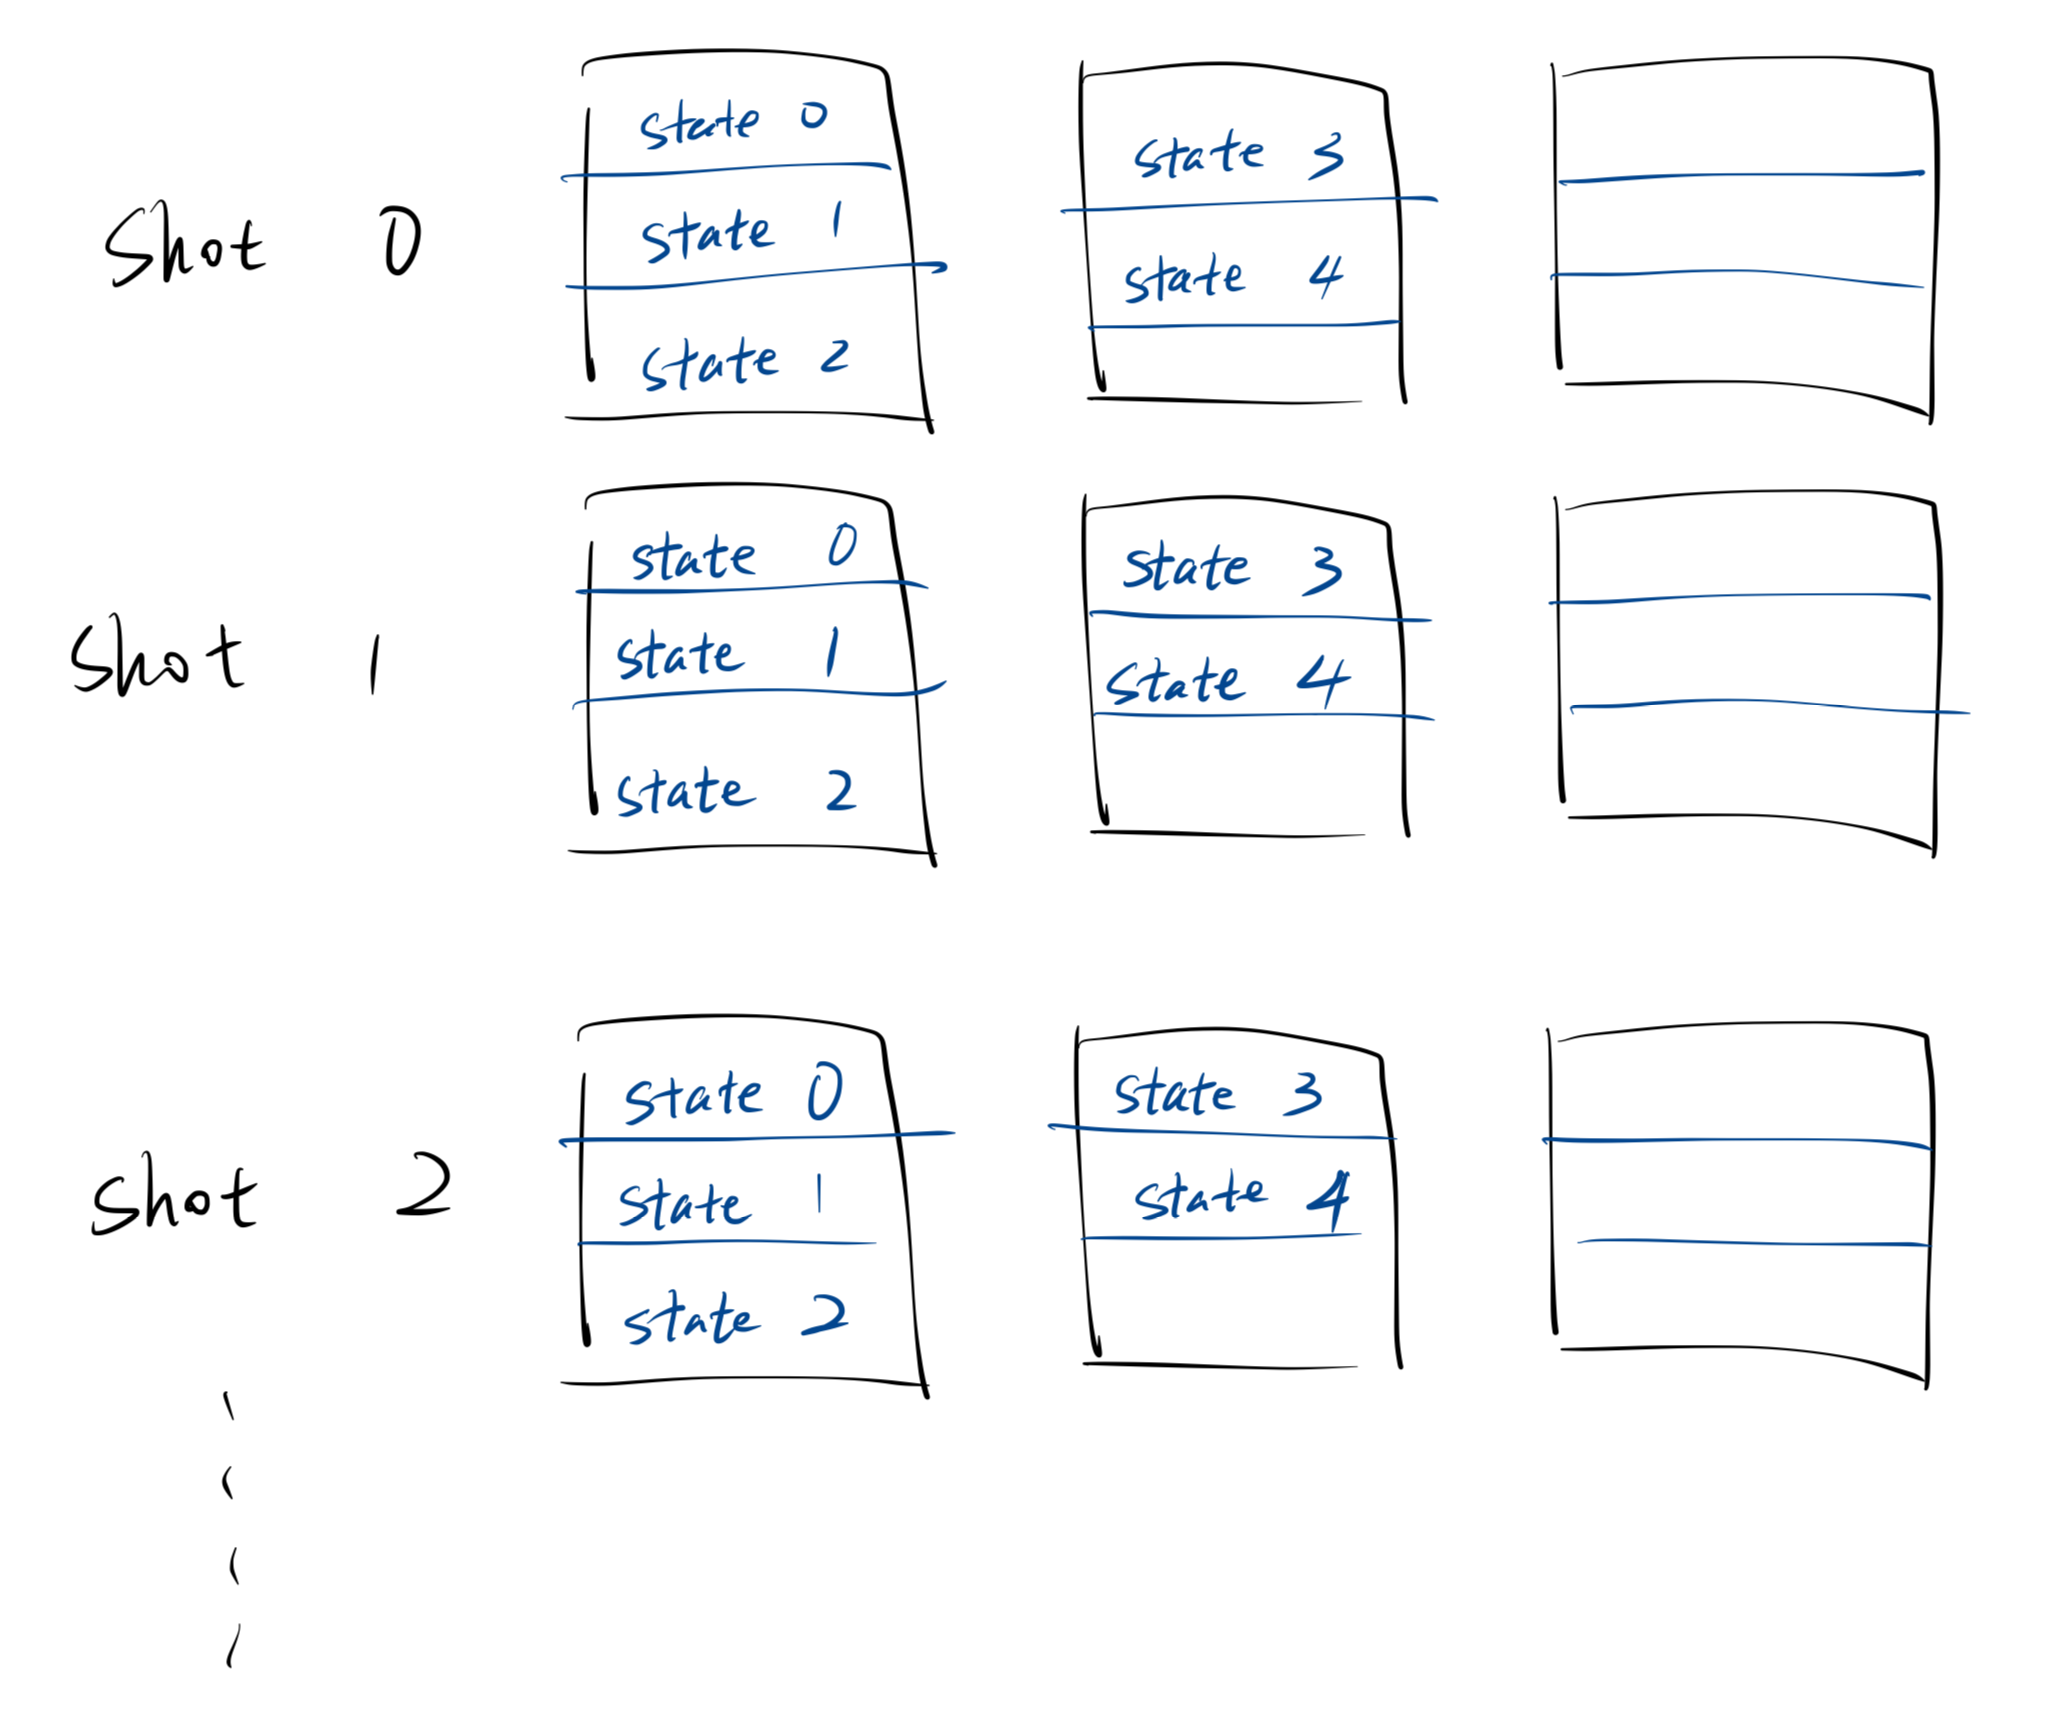 Shot 0
state 0
state 1
state 2
state 3
state 4
Shot 1
state 0
state 1
state 2
state 3
state 4
Shot 2
state 0
state 1
state 2
state 3
state 4